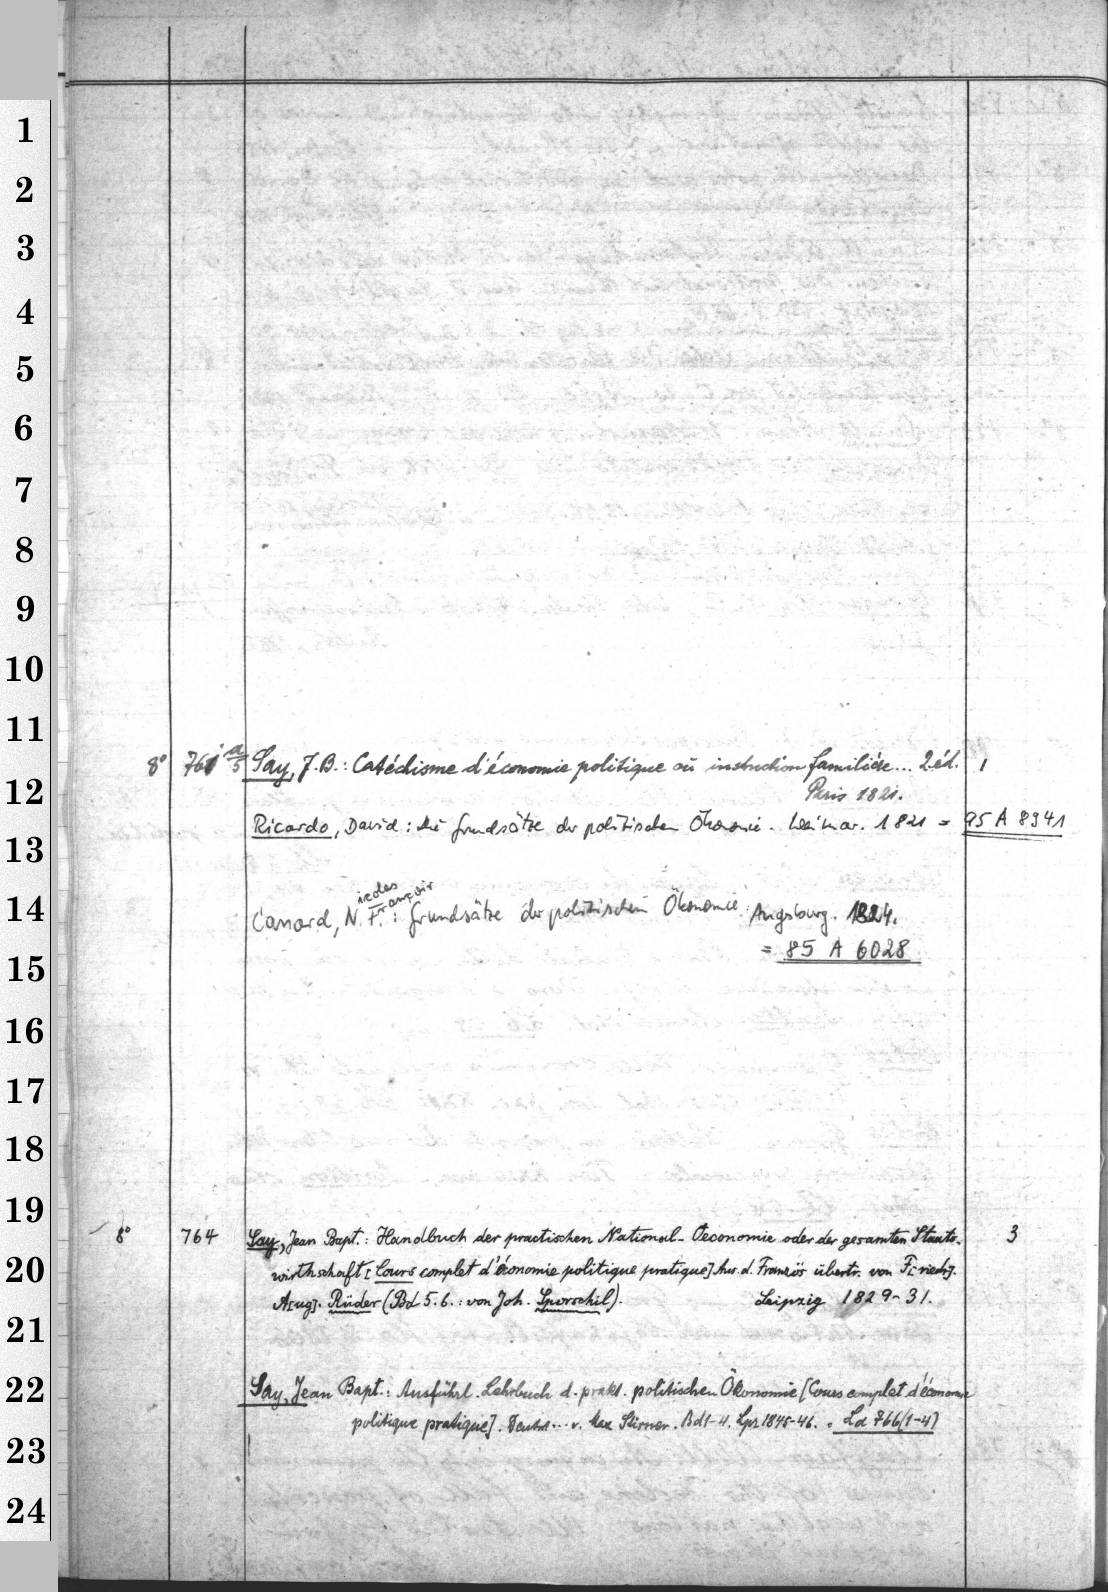 1
2
3
4
5
6
7
8
9
10
11
8° 761 a/5 Say, J.B.: Catéchisme d'économie politique où instruction familiére... 2éd. 1
12
Paris 1821.
Ricardo, David: die Grundsätze der politischen Ökonomie. Weimar. 1821 = 95 A 8941
13
icolas rançois
14
Canard, N. F.: Grundsätze der politischen Ökonomie. Augsburg. 1824.
= 85 A 6028
15
16
17
18
19
8° 764 Say, Jean Bapt.: Handbuch der practischen National-Oeconomie oder der gesamten Staats- 3
20
wirthschaft [Cours complet d'économie politique pratique] Aus d. Französ übertr. von F[riedr].
A[ug]. Rüder (Bd 5.6.: von Joh. Sporschil). Leipzig 1829-31.
21
22
Say, Jean Bapt.: Ausführl. Lehrbuch d. prakt. politischen Ökonomie [Cours complet d'économie
politique pratique]. Deutsch... v. Max Stirner. Bd 1-4. Lpz 1845-46. = Ld 766(1-4)
23
24